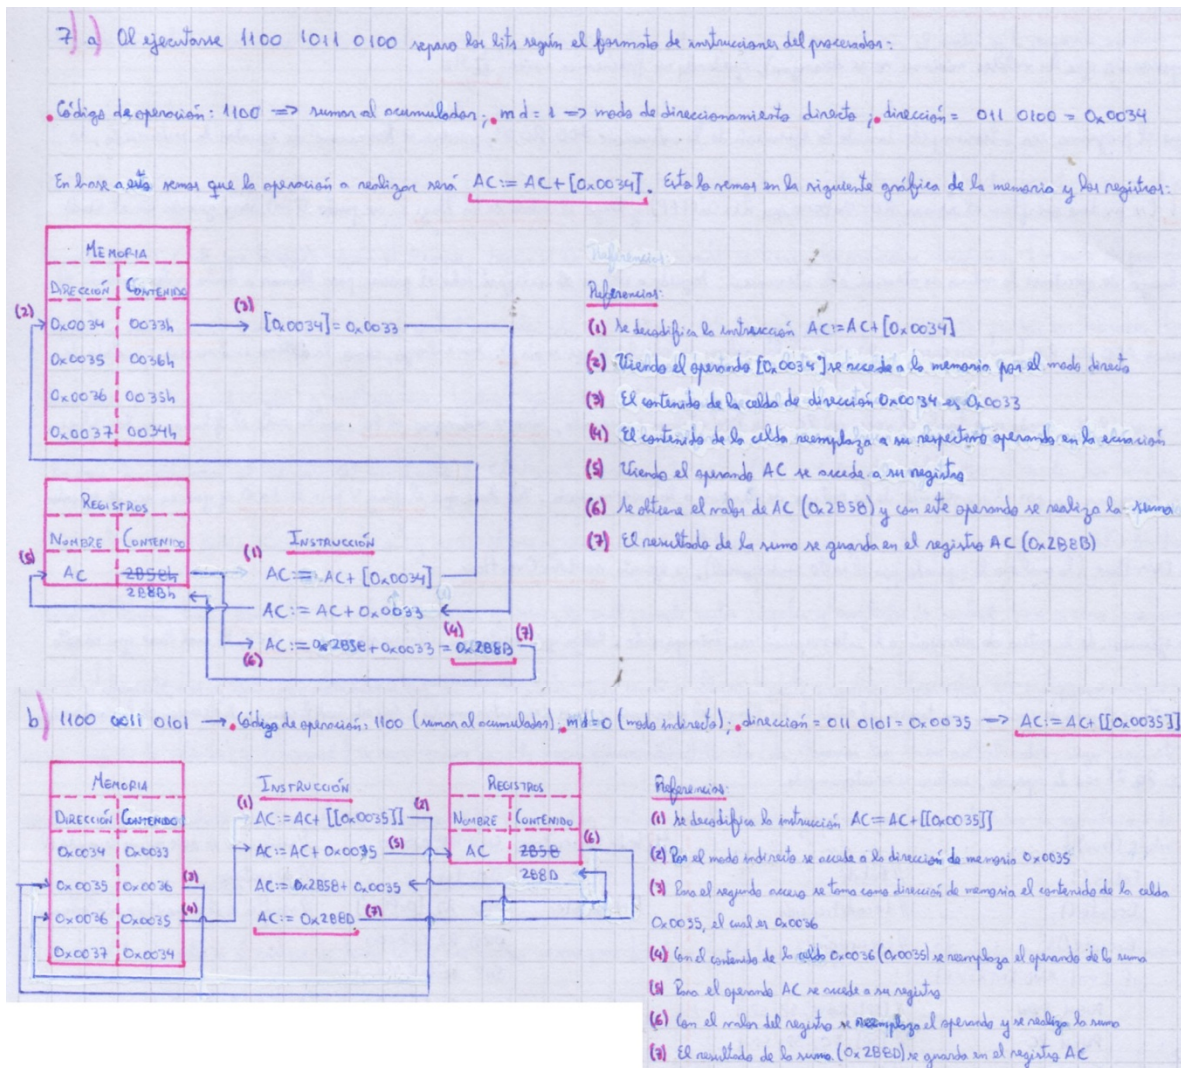 7) a) Al ejecutarse 1100 1011 0100 separo los bits según el formato de instrucciones del procesador:
• Código de operación: 1100 => sumar al acumulador; • md = 1 => modo de direccionamiento directo ; • dirección = 011 0100 = 0x0034
En base a esto vemos que la operación a realizar será AC:= AC + [0x0034]. Esto lo vemos en la siguiente gráfica de la memoria y los registros:
MEMORIA
DIRECCIÓN CONTENIDO
(2) 0x0034 0033h (3) [0x0034] = 0x0033
0x0035 0036h
0x0036 0035h
0x0037 0034h
Referencias:
Referencias:
(1) Se decodifica la instrucción AC:=AC+[0x0034]
(2) Viendo el operando [0x0034] se accede a la memoria por el modo directo
(3) El contenido de la celda de dirección 0x0034 es 0x0033
(4) El contenido de la celda reemplaza a su respectivo operando en la ecuación
(5) Viendo el operando AC se accede a su registro
(6) Se obtiene el valor de AC (0x2B58) y con este operando se realiza la suma
(7) El resultado de la suma se guarda en el registro AC (0x2B8B)
REGISTROS
NOMBRE CONTENIDO
(5) AC 2B58h
2B8Bh
INSTRUCCIÓN
(1) AC:= AC + [0x0034]
AC:= AC + 0x0033
(4) (7)
(6) AC:= 0x2B58 + 0x0033 = 0x2B8B
b) 1100 0011 0101 → • Código de operación: 1100 (sumar al acumulador); • md=0 (modo indirecto); • dirección = 011 0101 = 0x0035 → AC:= AC+ [[0x0035]]
MEMORIA
DIRECCIÓN CONTENIDO
0x0034 0x0033
0x0035 0x0036 (3)
0x0036 0x0035 (4)
0x0037 0x0034
INSTRUCCIÓN
(1) AC:= AC+ [[0x0035]] (2)
AC:= AC+ 0x0035 (5)
AC:= 0x2B58+ 0x0035
AC:= 0x2B8D (7)
REGISTROS
NOMBRE CONTENIDO
AC 2B58 (6)
2B8D
Referencias:
(1) Se decodifica la instrucción AC:= AC+[[0x0035]]
(2) Por el modo indirecto se accede a la dirección de memoria 0x0035
(3) Para el segundo acceso se toma como dirección de memoria el contenido de la celda
0x0035, el cual es 0x0036
(4) Con el contenido de la celda 0x0036 (0x0035) se reemplaza el operando de la suma
(5) Para el operando AC se accede a su registro
(6) Con el valor del registro se reemplaza el operando y se realiza la suma
(7) El resultado de la suma (0x2B8D) se guarda en el registro AC